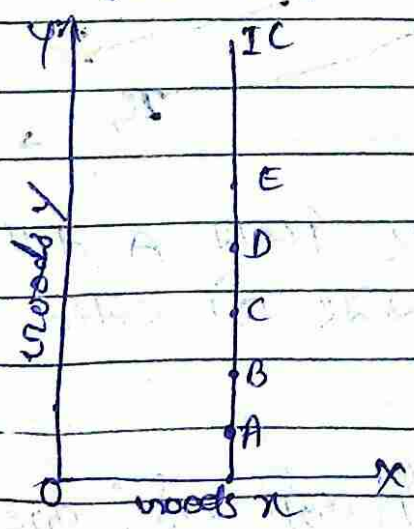 Y
IC
E
D
C
B
A
goods y
O
goods x
X